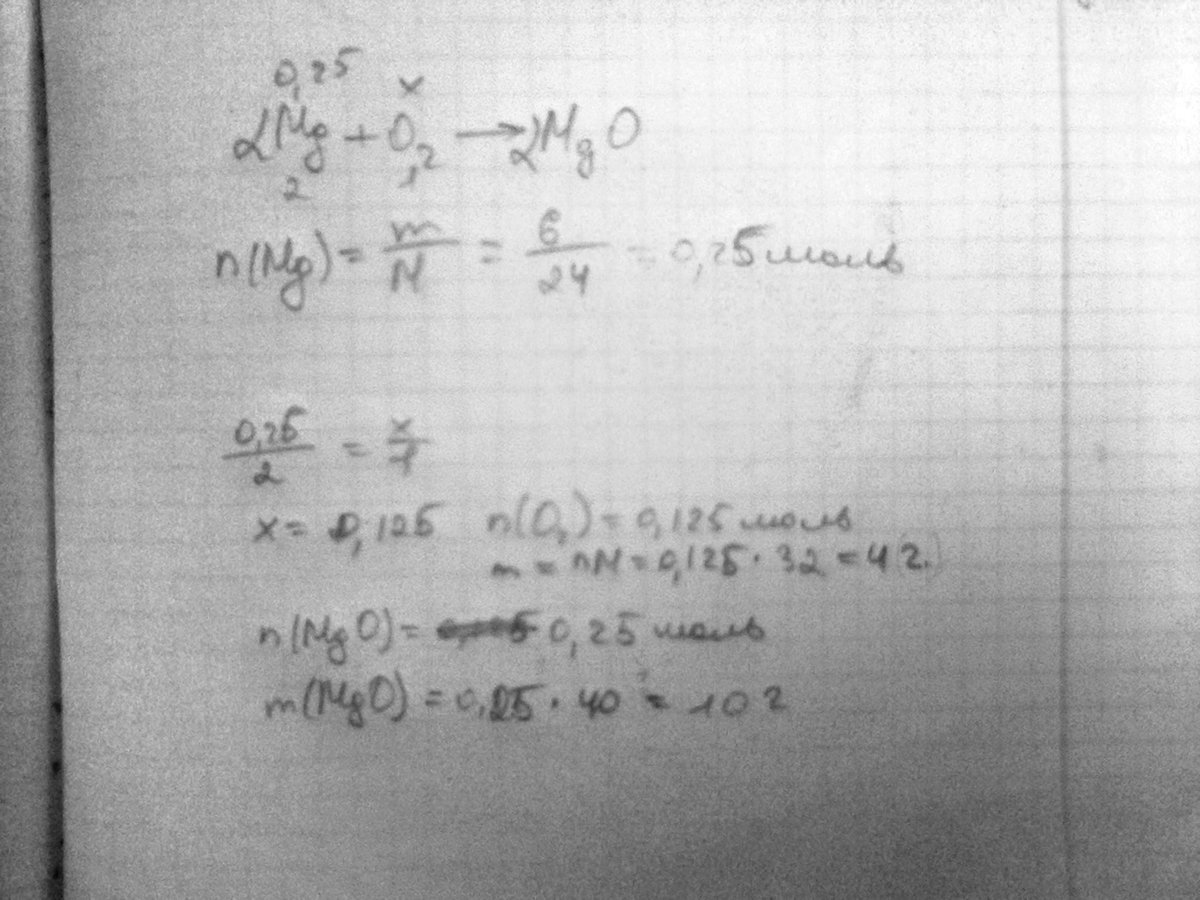 0,25 x
2Mg + O2 → 2MgO
2 1
n(Mg) = m/M = 6/24 = 0,25 моль
0,25/2 = x/1
x = 0,125 n(O2) = 0,125 моль
m = nM = 0,125 · 32 = 4 (г.)
n(MgO) = 0,25 моль
m(MgO) = 0,25 · 40 = 10 г